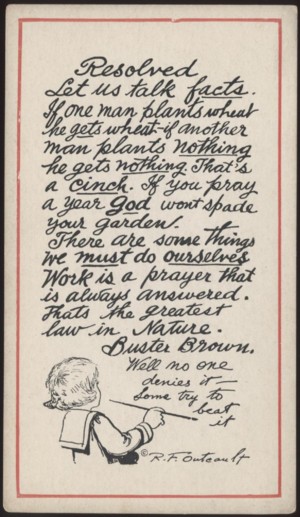 Resolved
Let us talk facts.
If one man plants wheat
he gets wheat - if another
man plants nothing
he gets nothing. That's
a cinch. If you pray
a year God wont spade
your garden.
There are some things
we must do ourselves
Work is a prayer that
is always answered.
Thats the greatest
law in Nature.
Buster Brown.
Well no one
denies it —
Some try to
beat
it
© R.F. Outcault